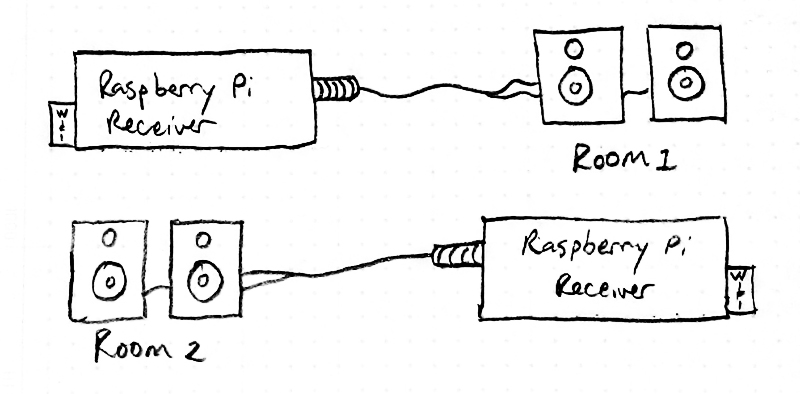 Raspberry Pi
Receiver
Wifi
Room 1
Raspberry Pi
Receiver
Wifi
Room 2